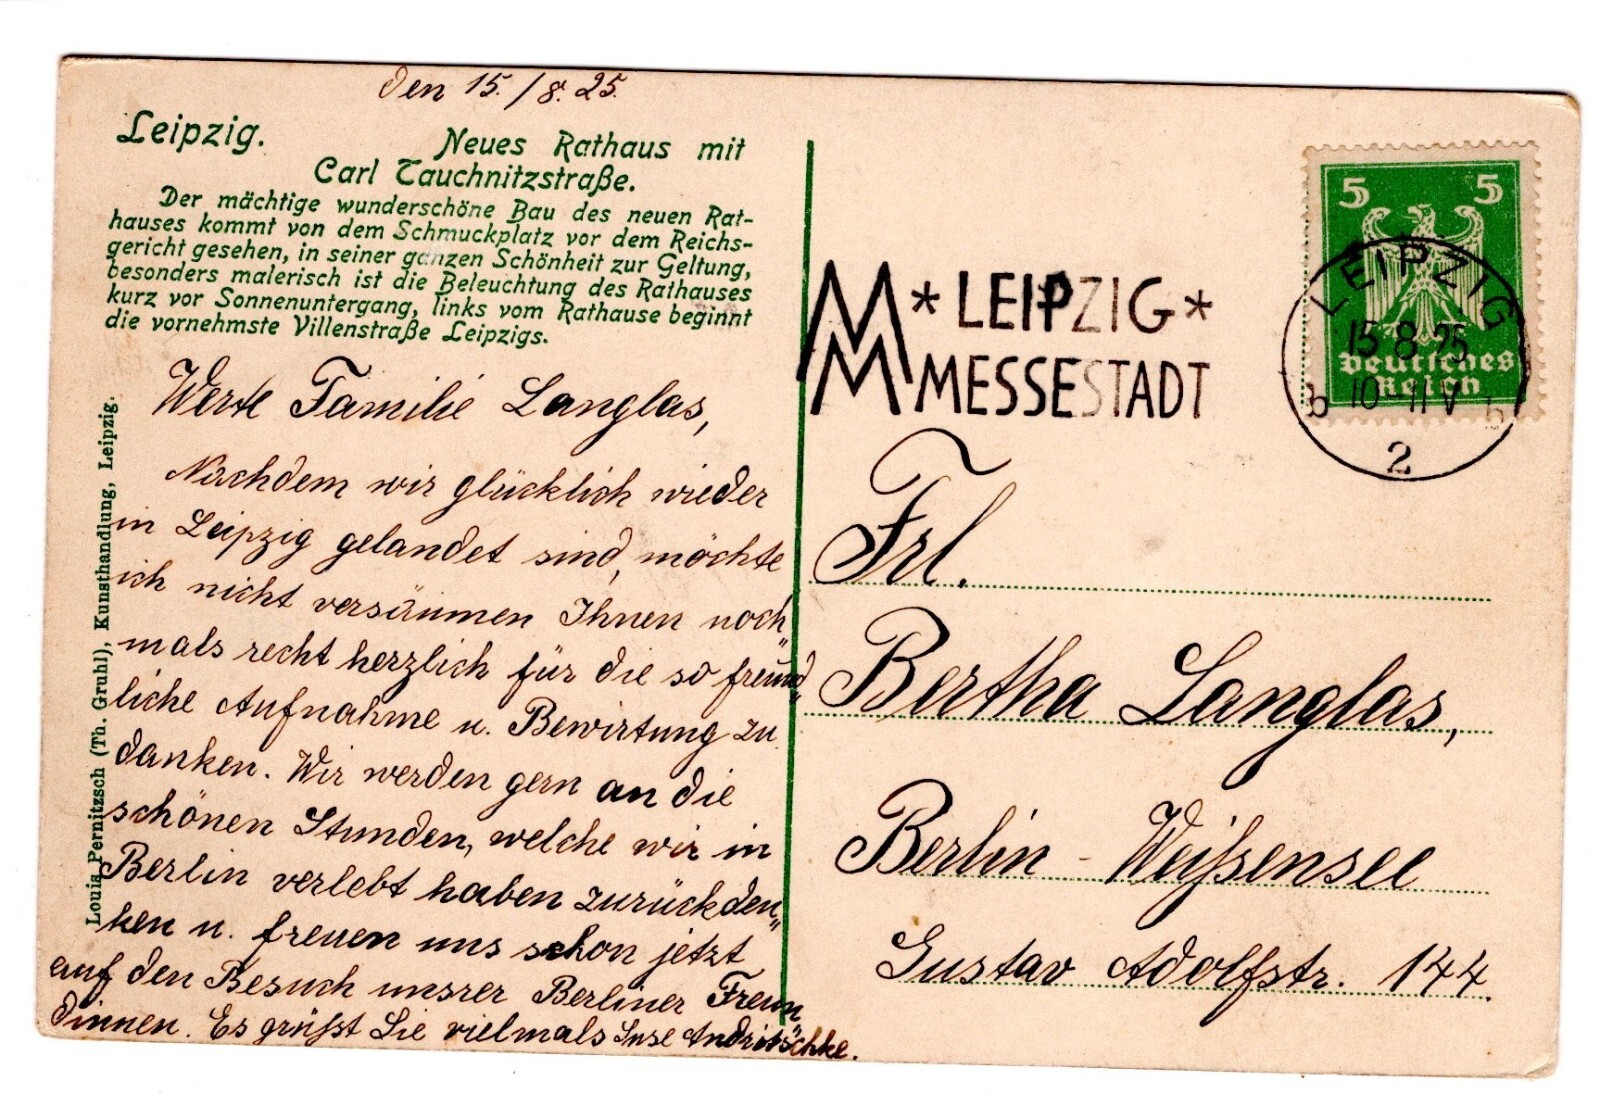 den 15./8.25.
Leipzig. Neues Rathaus mit
Carl Tauchnitzstraße.
Der mächtige wunderschöne Bau des neuen Rat-
hauses kommt von dem Schmuckplatz vor dem Reichs-
gericht gesehen, in seiner ganzen Schönheit zur Geltung,
besonders malerisch ist die Beleuchtung des Rathauses
kurz vor Sonnenuntergang, links vom Rathause beginnt
die vornehmste Villenstraße Leipzigs.
Werte Familie Langlas,
Nachdem wir glücklich wieder
in Leipzig gelandet sind, möchte
ich nicht versäumen Ihnen noch„
mals recht herzlich für die so freund„
liche Aufnahme u. Bewirtung zu
danken. Wir werden gern an die
schönen Stunden, welche wir in
Berlin verlebt haben zurückden„
ken u. freuen uns schon jetzt
auf den Besuch unsrer Berliner Freun
dinnen. Es grüßt Sie vielmals
Louis Pernitzsch (Th. Gruhl), Kunsthandlung, Leipzig.
MM * LEIPZIG *
MESSESTADT
5 5
Deutsches
Reich
LEIPZIG
15.8.25
b 10-11V b
2
Frl.
Bertha Langlas,
Berlin - Weißensee
Gustav Adolfstr. 144.